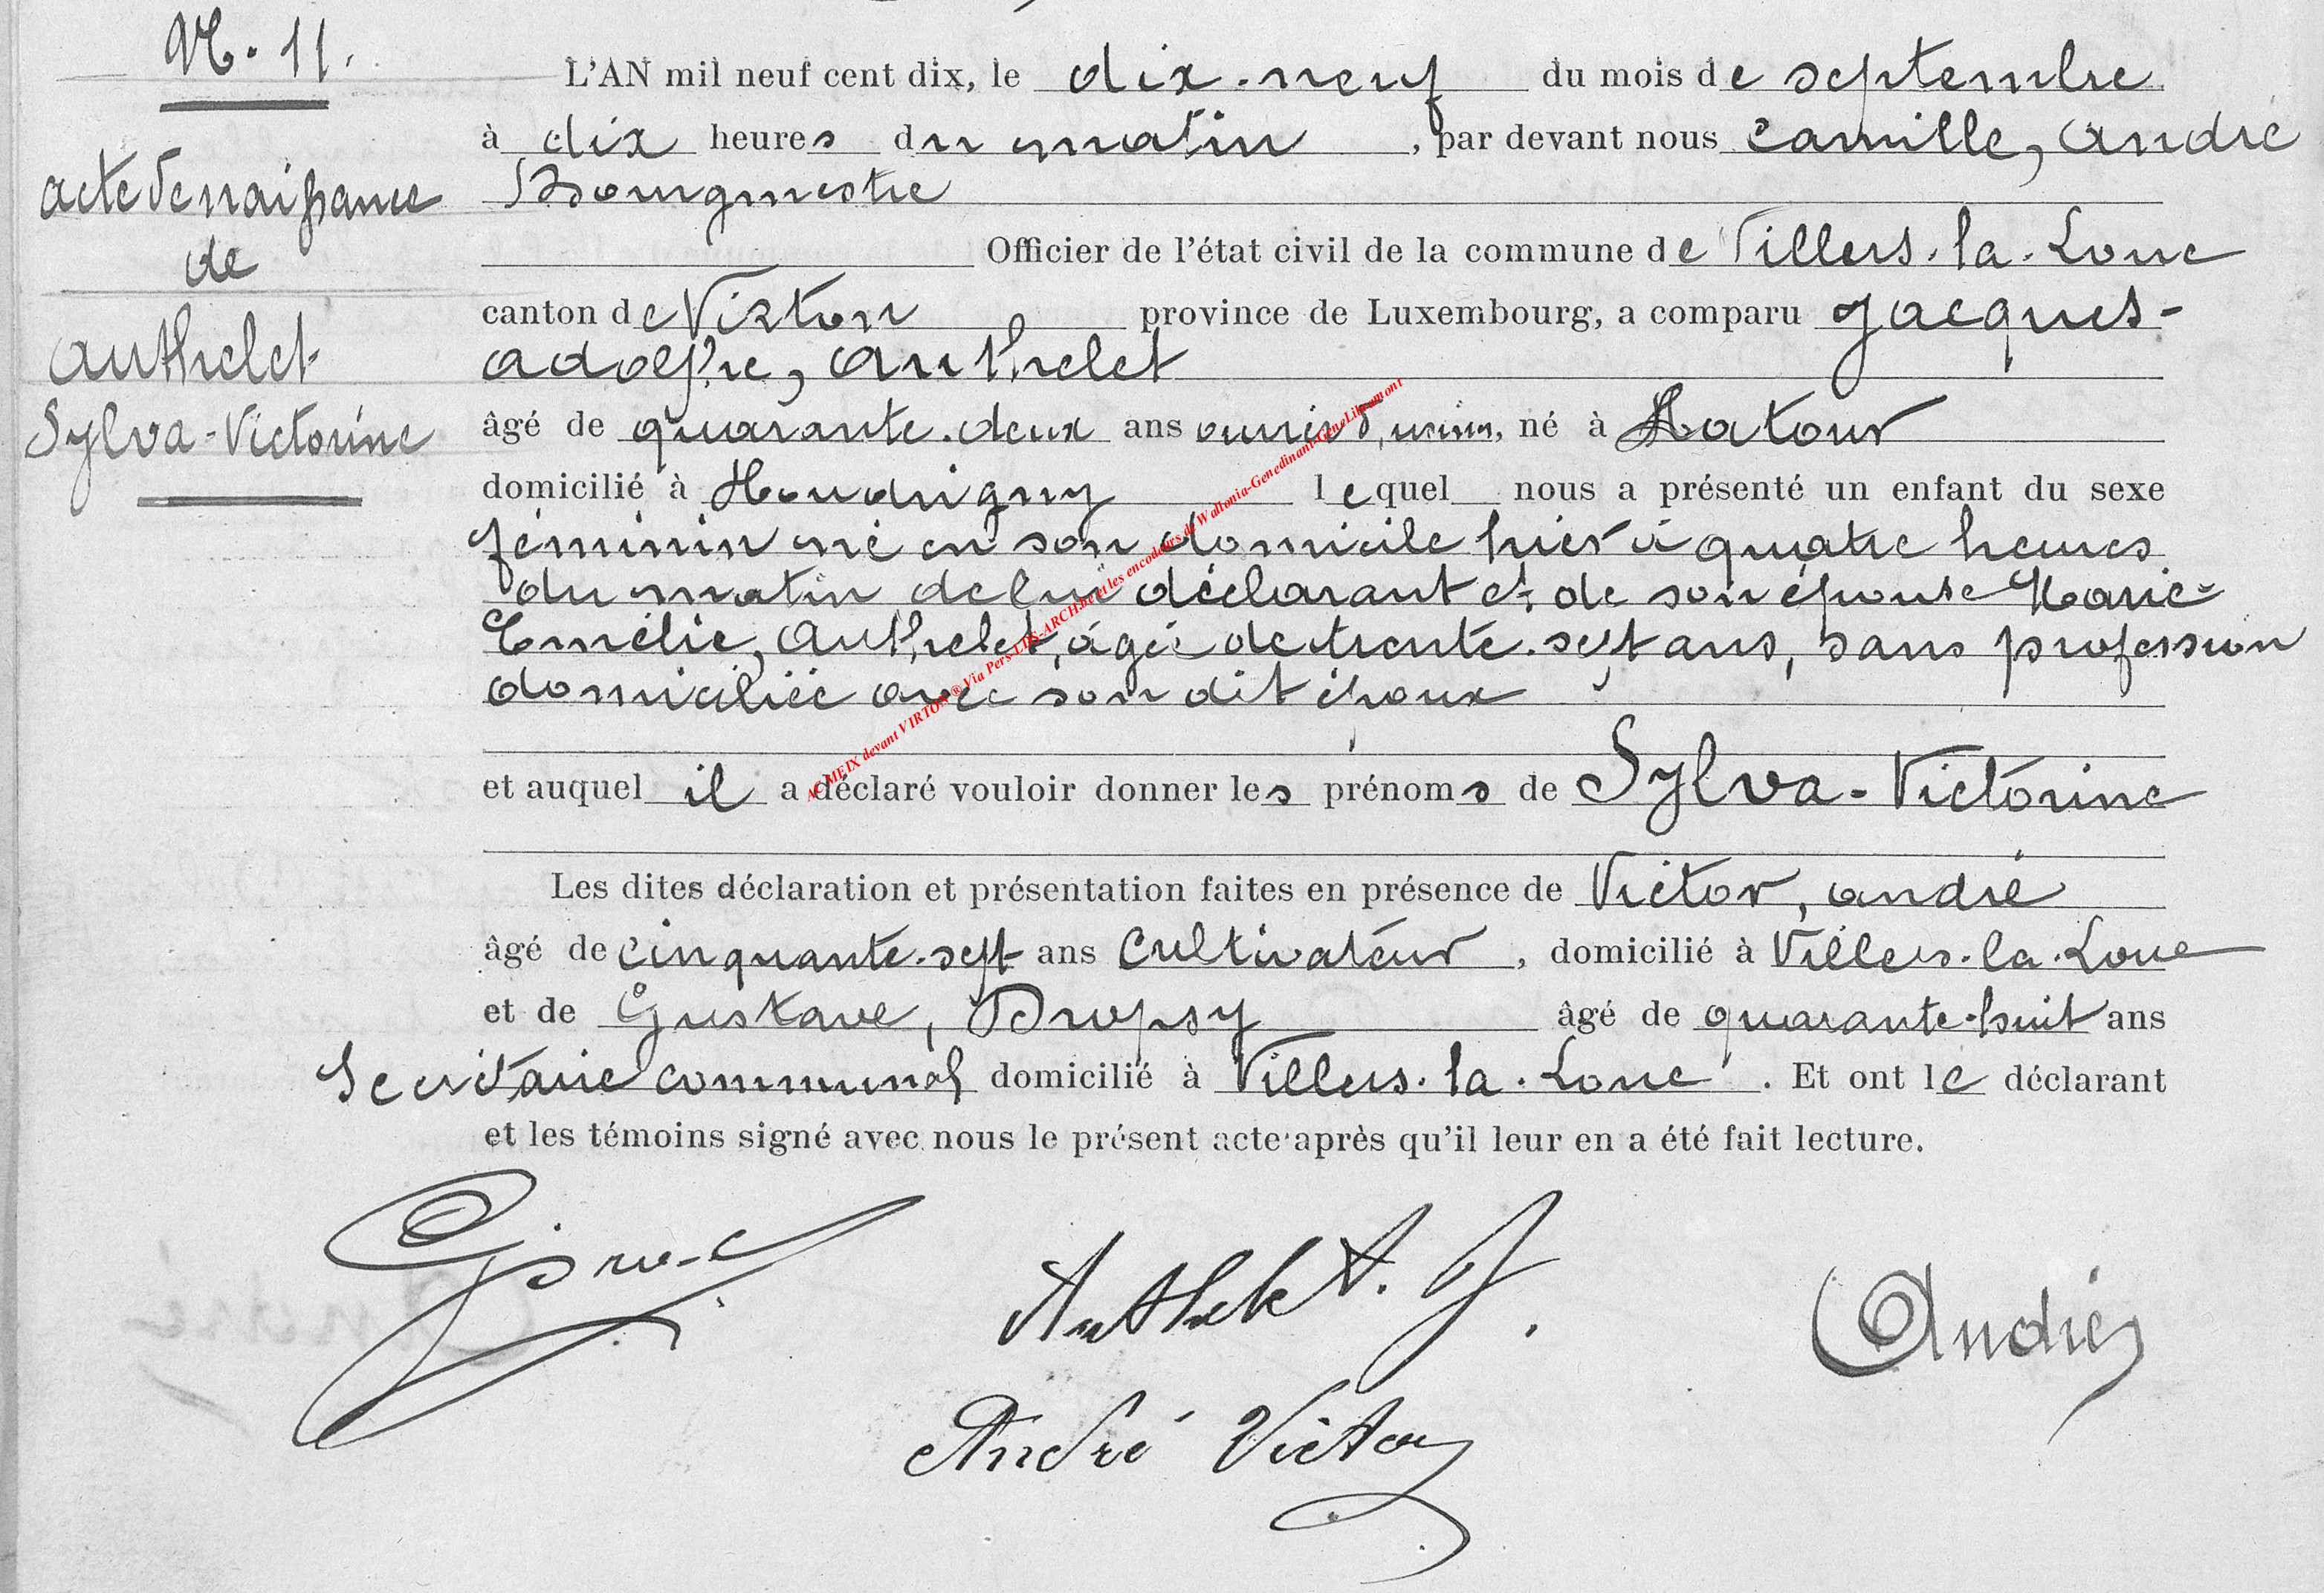 N. 11.
acte de naissance
de
authelet
Sylva-Victorine
L'AN mil neuf cent dix, le dix-neuf du mois de septembre
à dix heures du matin, par devant nous Camille, André
Bourgmestre
Officier de l'état civil de la commune de Villers-la-Loue
canton de Virton province de Luxembourg, a comparu Jacques-
adolphe, authelet
âgé de quarante-deux ans ouvrier d'usines, né à Latour
domicilié à Houdrigny lequel nous a présenté un enfant du sexe
féminin né en son domicile hier à quatre heures
du matin de lui déclarant et de son épouse Marie-
Emélie, authelet, âgée de trente-sept ans, sans profession
domiciliée avec son dit époux
et auquel il a déclaré vouloir donner les prénoms de Sylva-Victorine
Les dites déclaration et présentation faites en présence de Victor, andré
âgé de cinquante-sept ans Cultivateur, domicilié à Villers-la-Loue
et de Gustave, Dropsy âgé de quarante-huit ans
Secrétaire communal domicilié à Villers-la-Loue. Et ont le déclarant
et les témoins signé avec nous le présent acte après qu'il leur en a été fait lecture.
Authelet. J.
André
André Victor
AC MEIX devant VIRTON ® Via Pers-LDS-ARCH.be et les encodeurs de Wallonia-Genedinant-GeneLibramont